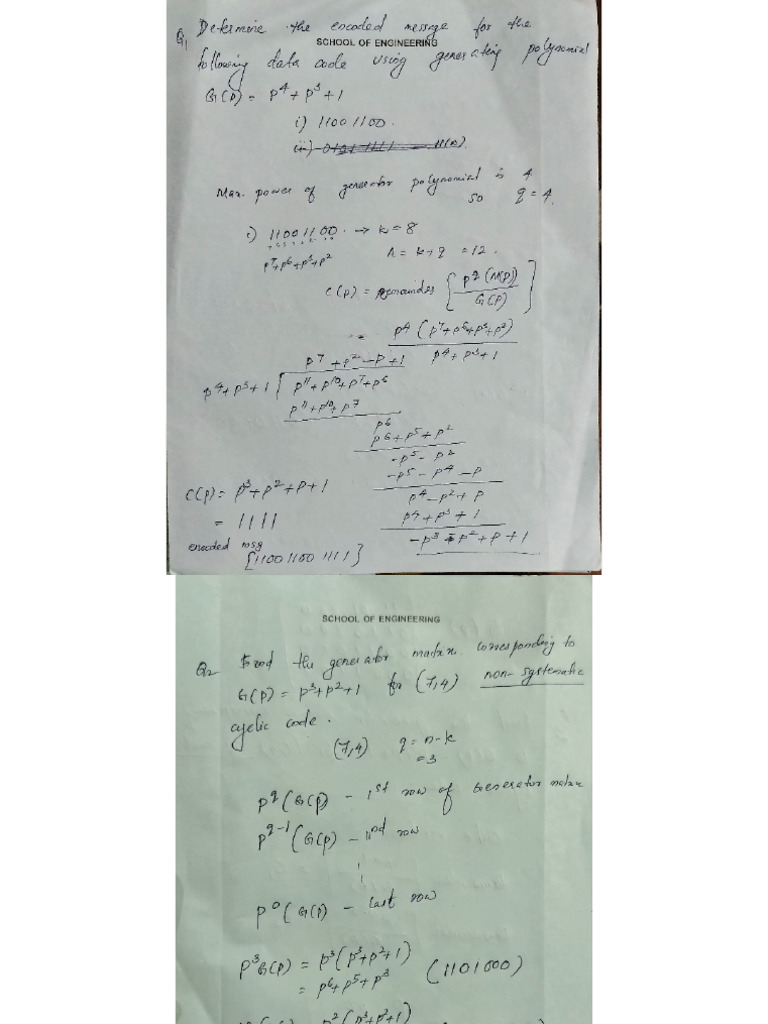 Q1 Determine the encoded message for the
SCHOOL OF ENGINEERING
following data code using generating polynomial
G(p) = p⁴ + p³ + 1
i) 11001100.
Max. power of generator polynomial is 4
so q = 4.
i) 11001100. → k = 8
p⁷+p⁶+p³+p² n = k+q = 12.
c(p) = remainder { p^q (M(p)) / G(p) }
= p⁴ (p⁷+p⁶+p³+p²) / p⁴+p³+1
p⁷ + p² - p + 1
p⁴+p³+1 ) p¹¹+p¹⁰+p⁷+p⁶
p¹¹+p¹⁰+p⁷
p⁶
p⁶+p⁵+p²
-p⁵ - p²
-p⁵ - p⁴ - p
p⁴ - p² + p
p⁴ + p³ + 1
-p³ - p² + p + 1
c(p) = p³+p²+p+1
= 1111
encoded msg
[11001100 1111]
SCHOOL OF ENGINEERING
Q2 Find the generator matrix corresponding to
G(p) = p³+p²+1 for (7,4) non-systematic
cyclic code.
(7,4) q = n-k
= 3
p^q (G(p) - 1st row of Generator matrix
p^q-1 (G(p) - IInd row
p⁰ (G(p) - last row
p³G(p) = p³(p³+p²+1)
= p⁶+p⁵+p³ (1101000)
p²(p³+p²+1)